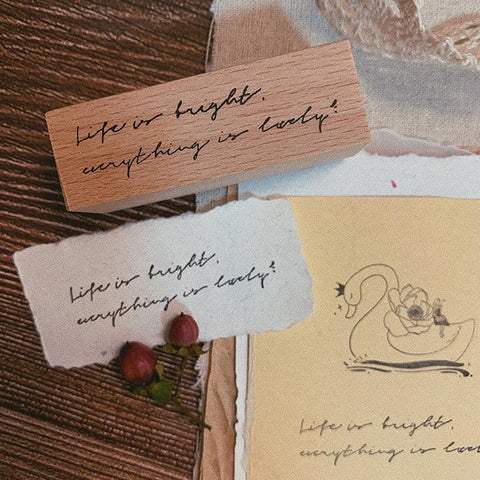 Life is bright,
everything is lovely!
Life is bright,
everything is lovely!
Life is bright,
everything is